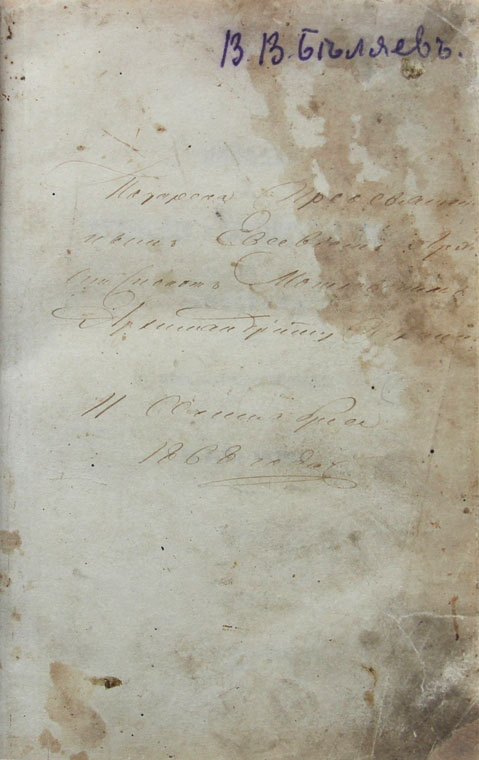 В. В. Бѣляевъ.
Подарена Преосвящен
нымъ Евсевіемъ Архі
епископомъ Могилевскимъ
Архимандриту
11 Сентября
1868 года